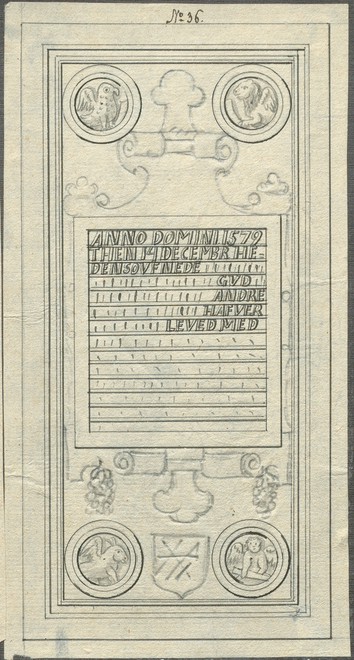 No 36.
ANNO DOMINI 1579
THEN 14 DECEMBR HE=
DENSOVFNEDE
GVD
ANDRE
HAFVER
LEVED MED